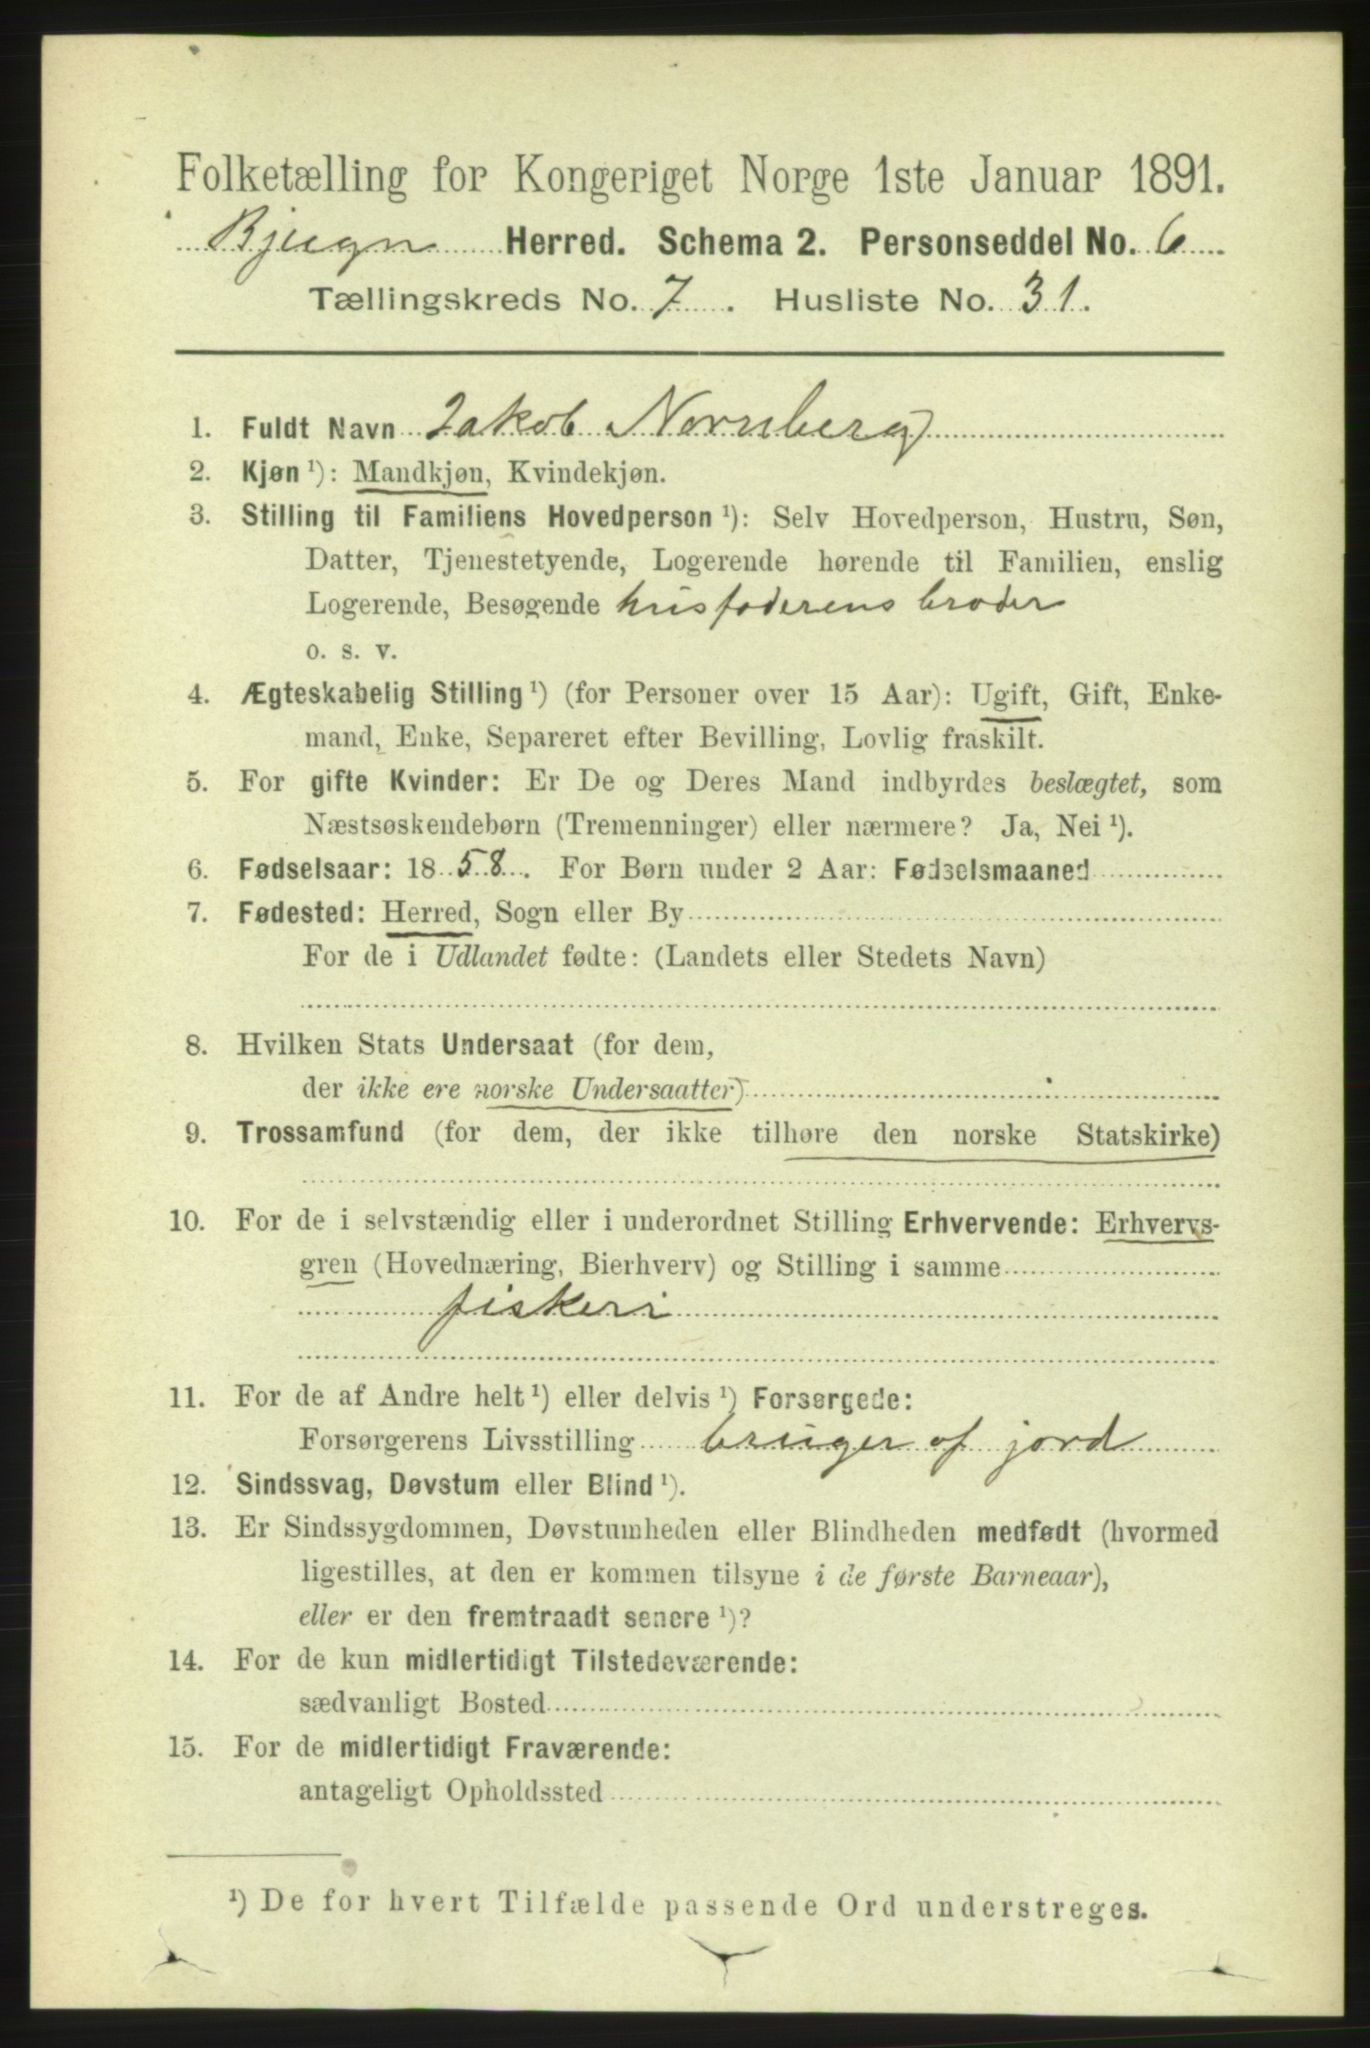 Folketælling for Kongeriget Norge 1ste Januar 1891.
Bjugn Herred. Schema 2. Personseddel No. 6
Tællingskreds No. 7. Husliste No. 31.
1. Fuldt Navn Jakob Nornberg
2. Kjøn ¹): Mandkjøn, Kvindekjøn.
3. Stilling til Familiens Hovedperson ¹): Selv Hovedperson, Hustru, Søn,
Datter, Tjenestetyende, Logerende hørende til Familien, enslig
Logerende, Besøgende husfaderens broder
o. s. v.
4. Ægteskabelig Stilling ¹) (for Personer over 15 Aar): Ugift, Gift, Enke-
mand, Enke, Separeret efter Bevilling, Lovlig fraskilt.
5. For gifte Kvinder: Er De og Deres Mand indbyrdes beslægtet, som
Næstsøskendebørn (Tremenninger) eller nærmere? Ja, Nei ¹).
6. Fødselsaar: 1858. For Børn under 2 Aar: Fødselsmaaned
7. Fødested: Herred, Sogn eller By
For de i Udlandet fødte: (Landets eller Stedets Navn)
8. Hvilken Stats Undersaat (for dem,
der ikke ere norske Undersaatter)
9. Trossamfund (for dem, der ikke tilhøre den norske Statskirke)
10. For de i selvstændig eller i underordnet Stilling Erhvervende: Erhvervs-
gren (Hovednæring, Bierhverv) og Stilling i samme
fiskeri
11. For de af Andre helt ¹) eller delvis ¹) Forsørgede:
Forsørgerens Livsstilling bruger af jord
12. Sindssvag, Døvstum eller Blind ¹).
13. Er Sindssygdommen, Døvstumheden eller Blindheden medfødt (hvormed
ligestilles, at den er kommen tilsyne i de første Barneaar),
eller er den fremtraadt senere ¹)?
14. For de kun midlertidigt Tilstedeværende:
sædvanligt Bosted
15. For de midlertidigt Fraværende:
antageligt Opholdssted
¹) De for hvert Tilfælde passende Ord understreges.